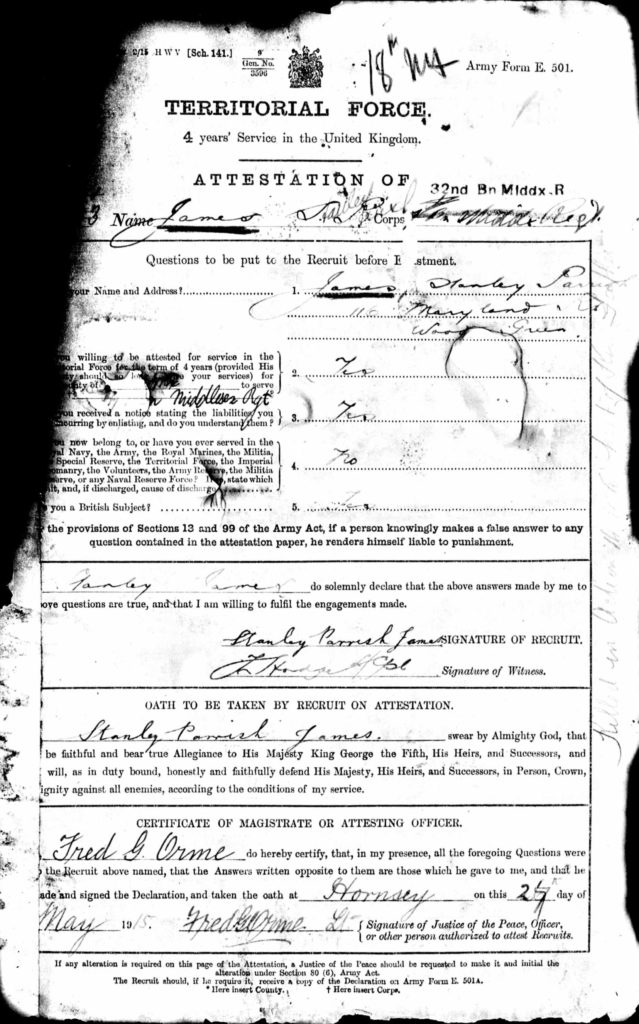 2/15 H W V [Sch. 141.] 9
Gen. No.
3596
18th Mx
Army Form E. 501.
TERRITORIAL FORCE.
4 years' Service in the United Kingdom.
ATTESTATION OF
32nd Bn Middx. R
3 Name James Corps Middx Regt.
Questions to be put to the Recruit before E stment.
our Name and Address? 1. James, Stanley
Maryland
Wood Green
u willing to be attested for service in the
torial Force for the term of 4 years (provided His
ty should so your services) for
ty of to serve
Middlesex Regt
2. Yes
you received a notice stating the liabilities you
curring by enlisting, and do you understand them?
3. Yes
ou now belong to, or have you ever served in the
al Navy, the Army, the Royal Marines, the Militia,
Special Reserve, the Territorial Force, the Imperial
omanry, the Volunteers, the Army Reserve, the Militia
erve, or any Naval Reserve Force? If so, state which
it, and, if discharged, cause of discharge
4. No
e you a British Subject? 5. Yes
r the provisions of Sections 13 and 99 of the Army Act, if a person knowingly makes a false answer to any
question contained in the attestation paper, he renders himself liable to punishment.
Stanley James do solemnly declare that the above answers made by me to
ove questions are true, and that I am willing to fulfil the engagements made.
Stanley Parrish James SIGNATURE OF RECRUIT.
Signature of Witness.
OATH TO BE TAKEN BY RECRUIT ON ATTESTATION.
Stanley Parrish James. swear by Almighty God, that
be faithful and bear true Allegiance to His Majesty King George the Fifth, His Heirs, and Successors, and
will, as in duty bound, honestly and faithfully defend His Majesty, His Heirs, and Successors, in Person, Crown,
ignity against all enemies, according to the conditions of my service.
CERTIFICATE OF MAGISTRATE OR ATTESTING OFFICER.
Fred G. Orme do hereby certify, that, in my presence, all the foregoing Questions were
o the Recruit above named, that the Answers written opposite to them are those which he gave to me, and that he
ade and signed the Declaration, and taken the oath at Hornsey on this 24 day of
May 1915. Fred G Orme Lt { Signature of Justice of the Peace, Officer,
or other person authorized to attest Recruits.
If any alteration is required on this page of the Attestation, a Justice of the Peace should be requested to make it and initial the
alteration under Section 80 (6), Army Act.
The Recruit should, if he require it, receive a copy of the Declaration on Army Form E. 501A.
* Here insert County. † Here insert Corps.
Killed in Action